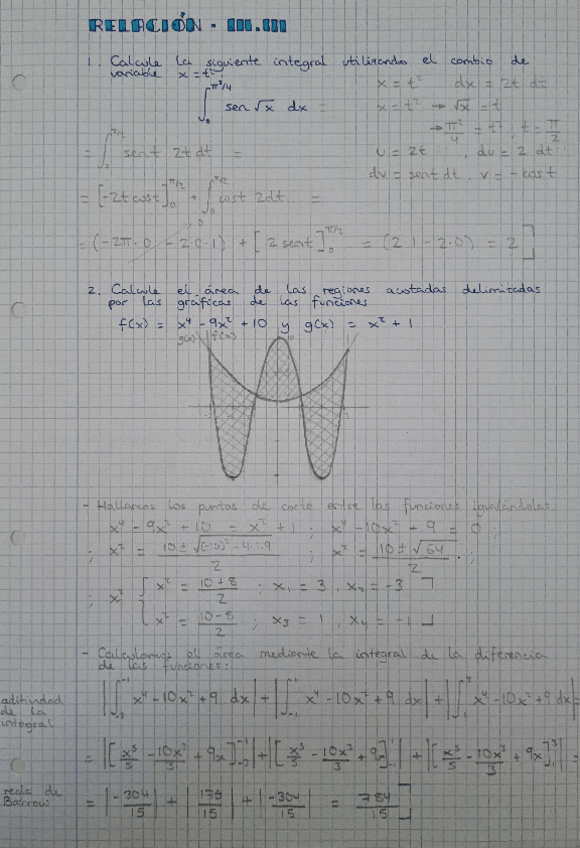 RELACIÓN - III.III
1. Calcule la siguiente integral utilizando el cambio de
variable x = t²
x = t² dx = 2t dt
∫₀^(π²/4) sen √x dx =
x = t² → √x = t
→ π²/4 = t², t = π/2
= ∫₀^(π/2) sen t 2t dt =
u = 2t, du = 2 dt
dv = sent dt, v = -cos t
= [-2t cost]₀^(π/2) + ∫₀^(π/2) cost 2dt =
= (-2π·0 - 2·0·1) + [2 sent]₀^(π/2) = (2·1 - 2·0) = 2
2. Calcule el área de las regiones acotadas delimitadas
por las gráficas de las funciones
f(x) = x⁴ - 9x² + 10 y g(x) = x² + 1
g(x) f(x)
- Hallamos los puntos de corte entre las funciones igualándolas.
x⁴ - 9x² + 10 = x² + 1 ; x⁴ - 10x² + 9 = 0 ;
; x² = (10 ± √((-10)² - 4·1·9))/2 ; x² = (10 ± √64)/2 .
; x² { x² = (10+8)/2 ; x₁ = 3, x₂ = -3
x² = (10-8)/2 ; x₃ = 1, x₄ = -1
- Calculamos el área mediante la integral de la diferencia
de las funciones:
aditividad
de la
integral
|∫₋₃⁻¹ x⁴ - 10x² + 9 dx| + |∫₋₁¹ x⁴ - 10x² + 9 dx| + |∫₁³ x⁴ - 10x² + 9 dx| =
= |[x⁵/5 - 10x³/3 + 9x]₋₃⁻¹| + |[x⁵/5 - 10x³/3 + 9x]₋₁¹| + |[x⁵/5 - 10x³/3 + 9x]₁³| =
regla de
Barrow
= |-304/15| + |176/15| + |-304/15| = 784/15